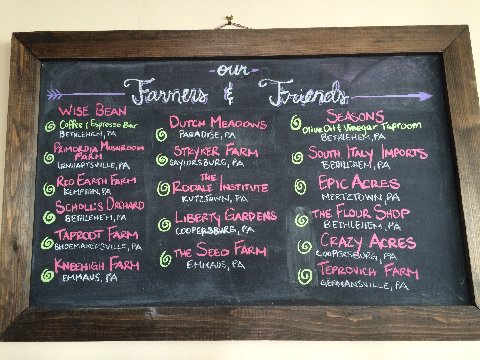 our
Farmers & Friends
Wise Bean
Coffee/Espresso Bar
Bethlehem, PA
Primordia Mushroom
Farm
Lenhartsville, PA
Red Earth Farm
Kempton, PA
Scholl's Orchard
Bethlehem, PA
Taproot Farm
Shoemakersville, PA
Kneehigh Farm
Emmaus, PA
Dutch Meadows
Paradise, PA
Stryker Farm
Saylorsburg, PA
The
Rodale Institute
Kutztown, PA
Liberty Gardens
Coopersburg, PA
The Seed Farm
Emmaus, PA
Seasons
Olive Oil & Vinegar Taproom
Bethlehem, PA
South Italy Imports
Bethlehem, PA
Epic Acres
Mertztown, PA
The Flour Shop
Bethlehem, PA
Crazy Acres
Coopersburg, PA
Teprovich Farm
Germansville, PA